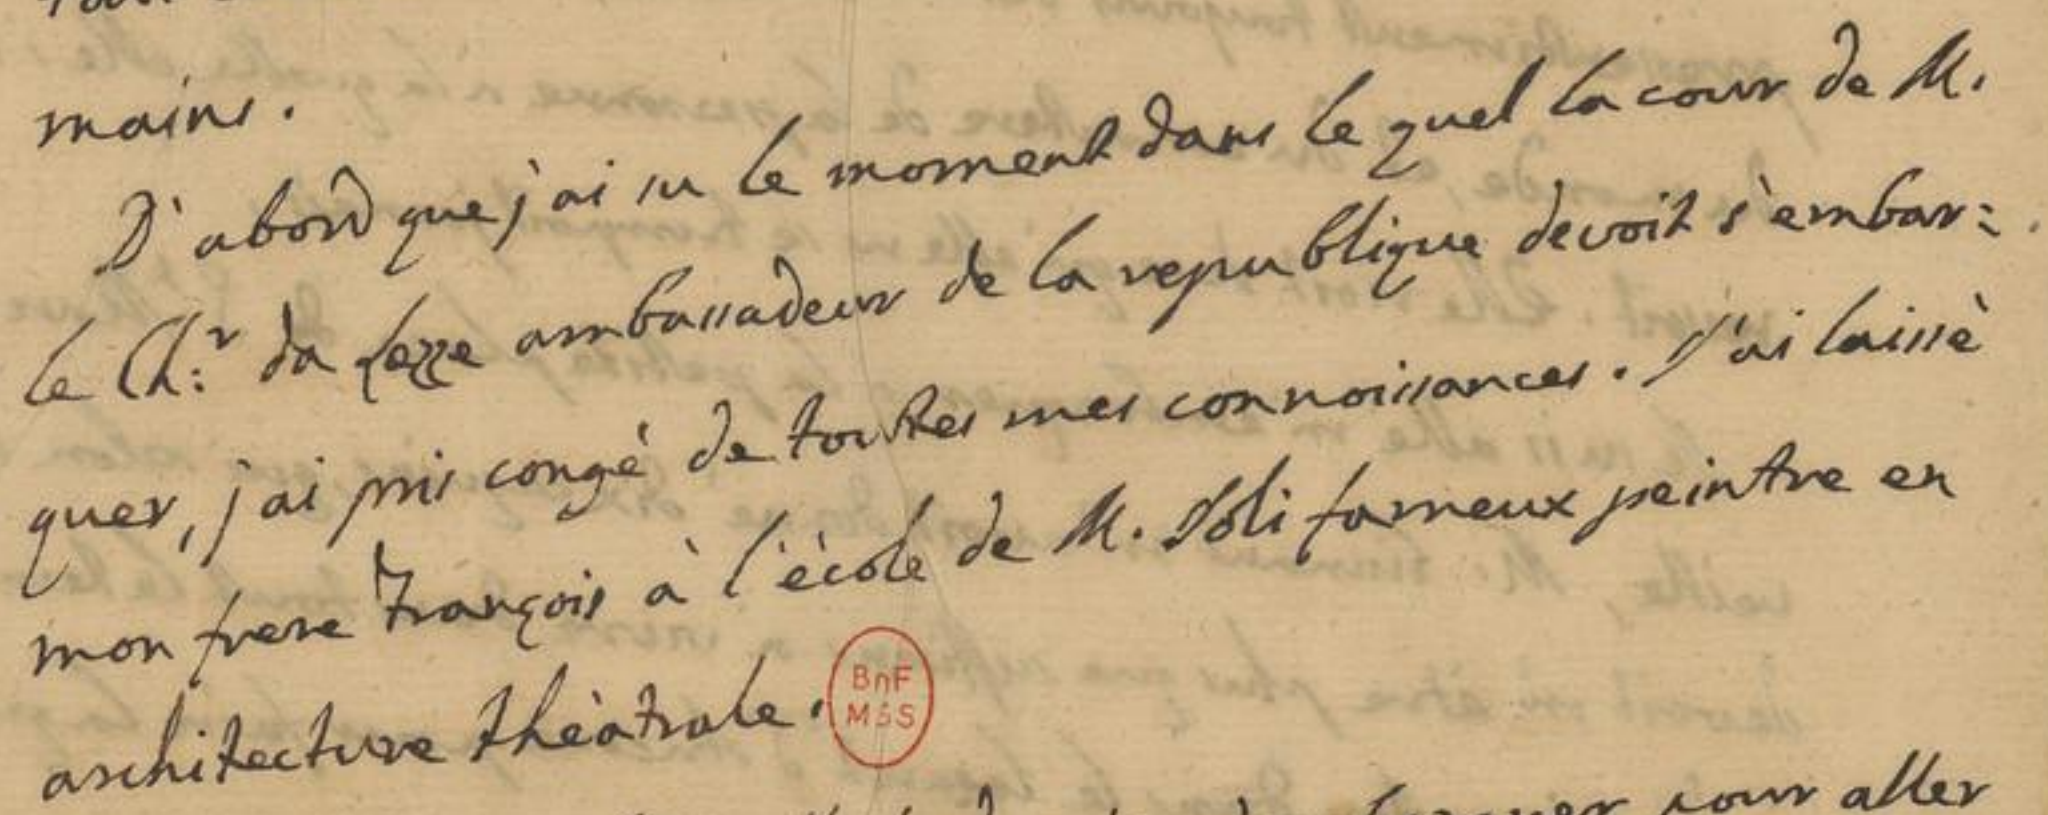 mains.
D'abord que j'ai su le moment dans le quel la cour de M.
le Ch:r da Lezze ambassadeur de la republique devoit s'embar=
quer, j'ai pris congé de toutes mes connoissances. J'ai laissè
mon frere François à l'ècole de M. Joli fameux peintre en
architecture thèatrale.
BnF
MSS
pour aller